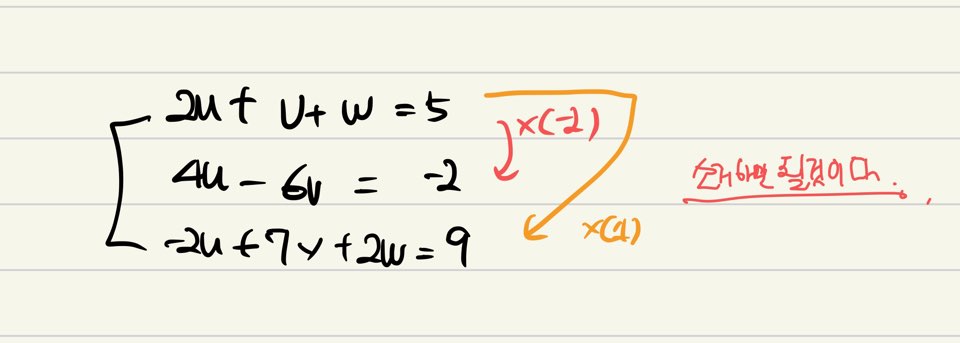 2u + v + w = 5
x(-2)
4u - 6v = -2
소거하면 될것이다.
-2u + 7v + 2w = 9
x(1)